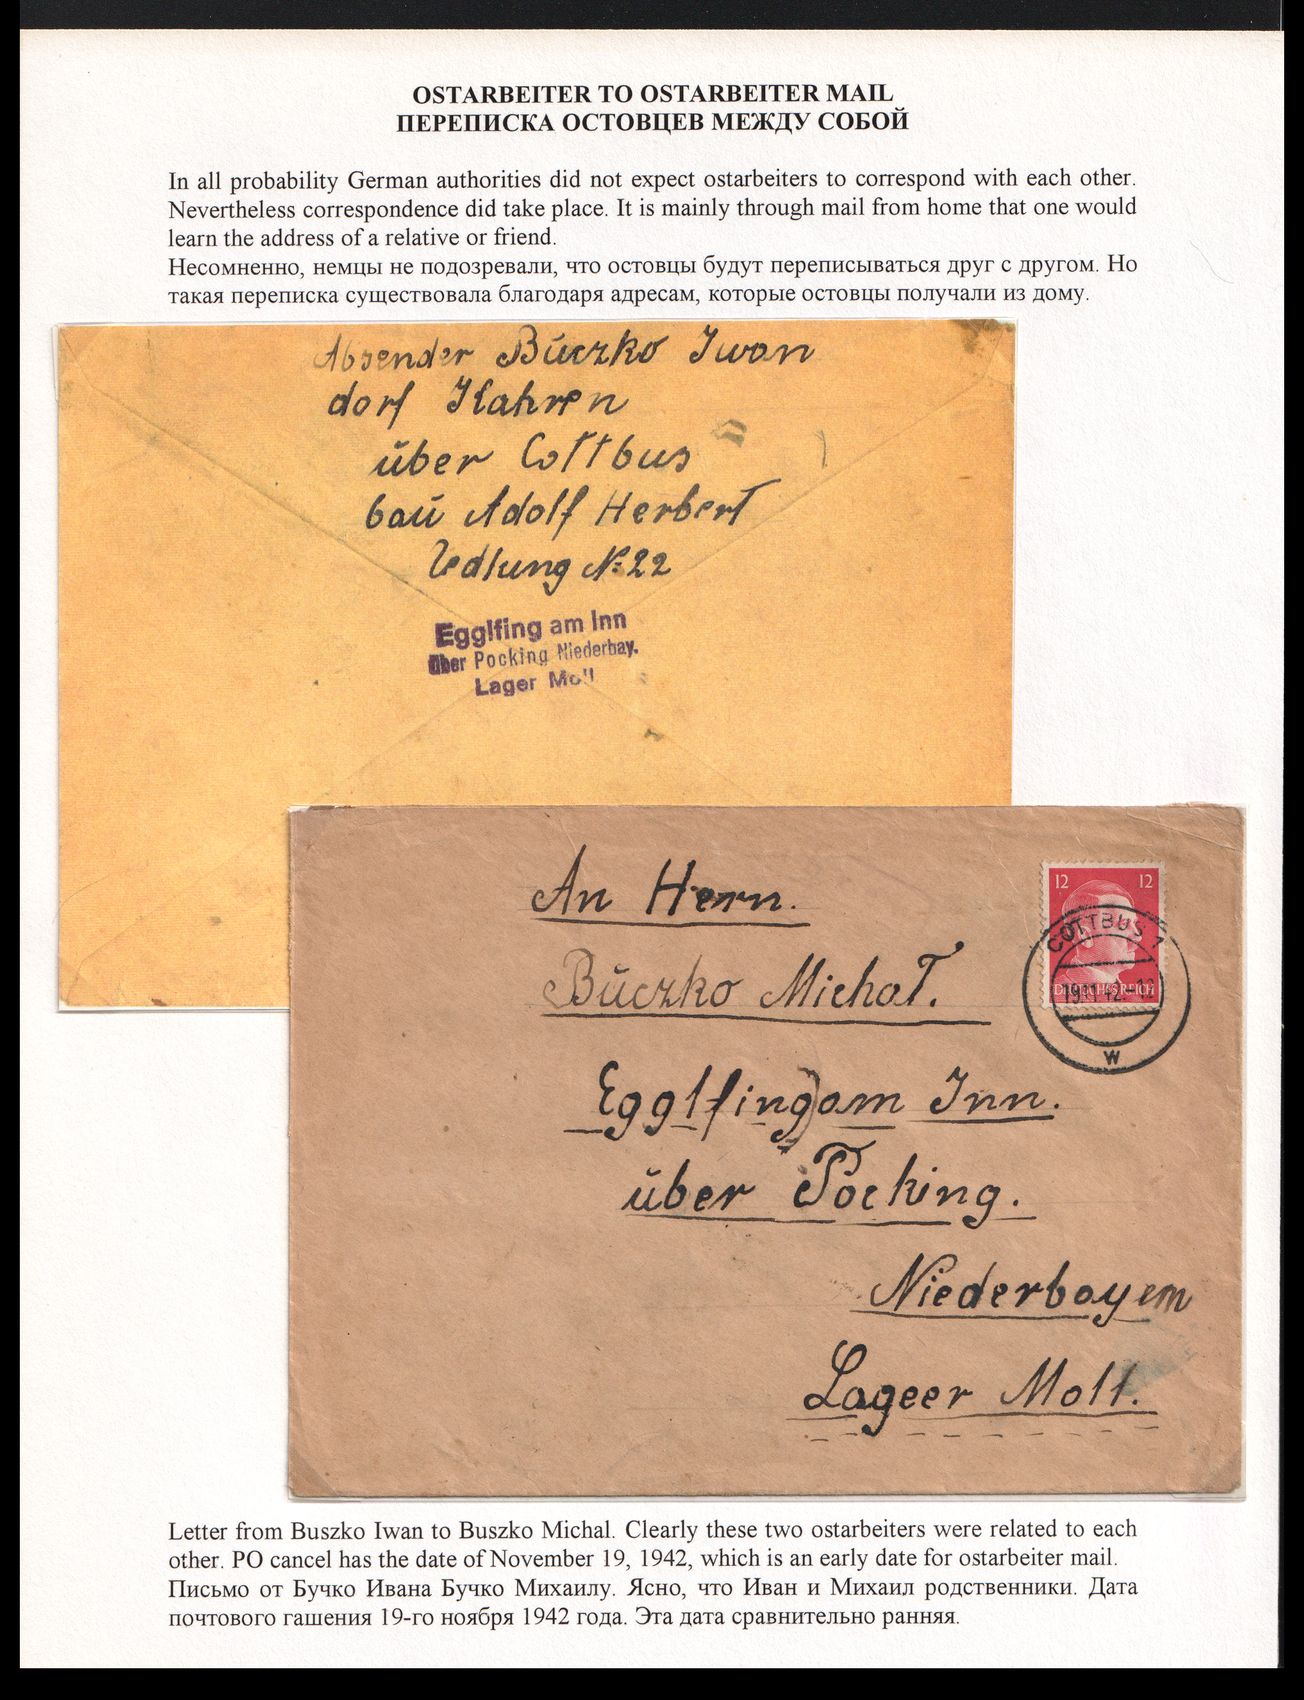 OSTARBEITER TO OSTARBEITER MAIL
ПЕРЕПИСКА ОСТОВЦЕВ МЕЖДУ СОБОЙ
In all probability German authorities did not expect ostarbeiters to correspond with each other.
Nevertheless correspondence did take place. It is mainly through mail from home that one would
learn the address of a relative or friend.
Несомненно, немцы не подозревали, что остовцы будут переписываться друг с другом. Но
такая переписка существовала благодаря адресам, которые остовцы получали из дому.
Absender Buczko Iwan
dorf Kahren
über Cottbus
baŭ Adolf Herbert
№ 22
Egglfing am Inn
über Pocking Niederbay.
Lager Moll
An Herrn.
Bŭczko Michał.
12 12
COTTBUS 1
DEUTSCHES REICH
19.11.42.-12
w
Egglfing am Inn.
über Pocking.
Niederbayern
Lageer Moll.
Letter from Buszko Iwan to Buszko Michal. Clearly these two ostarbeiters were related to each
other. PO cancel has the date of November 19, 1942, which is an early date for ostarbeiter mail.
Письмо от Бучко Ивана Бучко Михаилу. Ясно, что Иван и Михаил родственники. Дата
почтового гашения 19-го ноября 1942 года. Эта дата сравнительно ранняя.